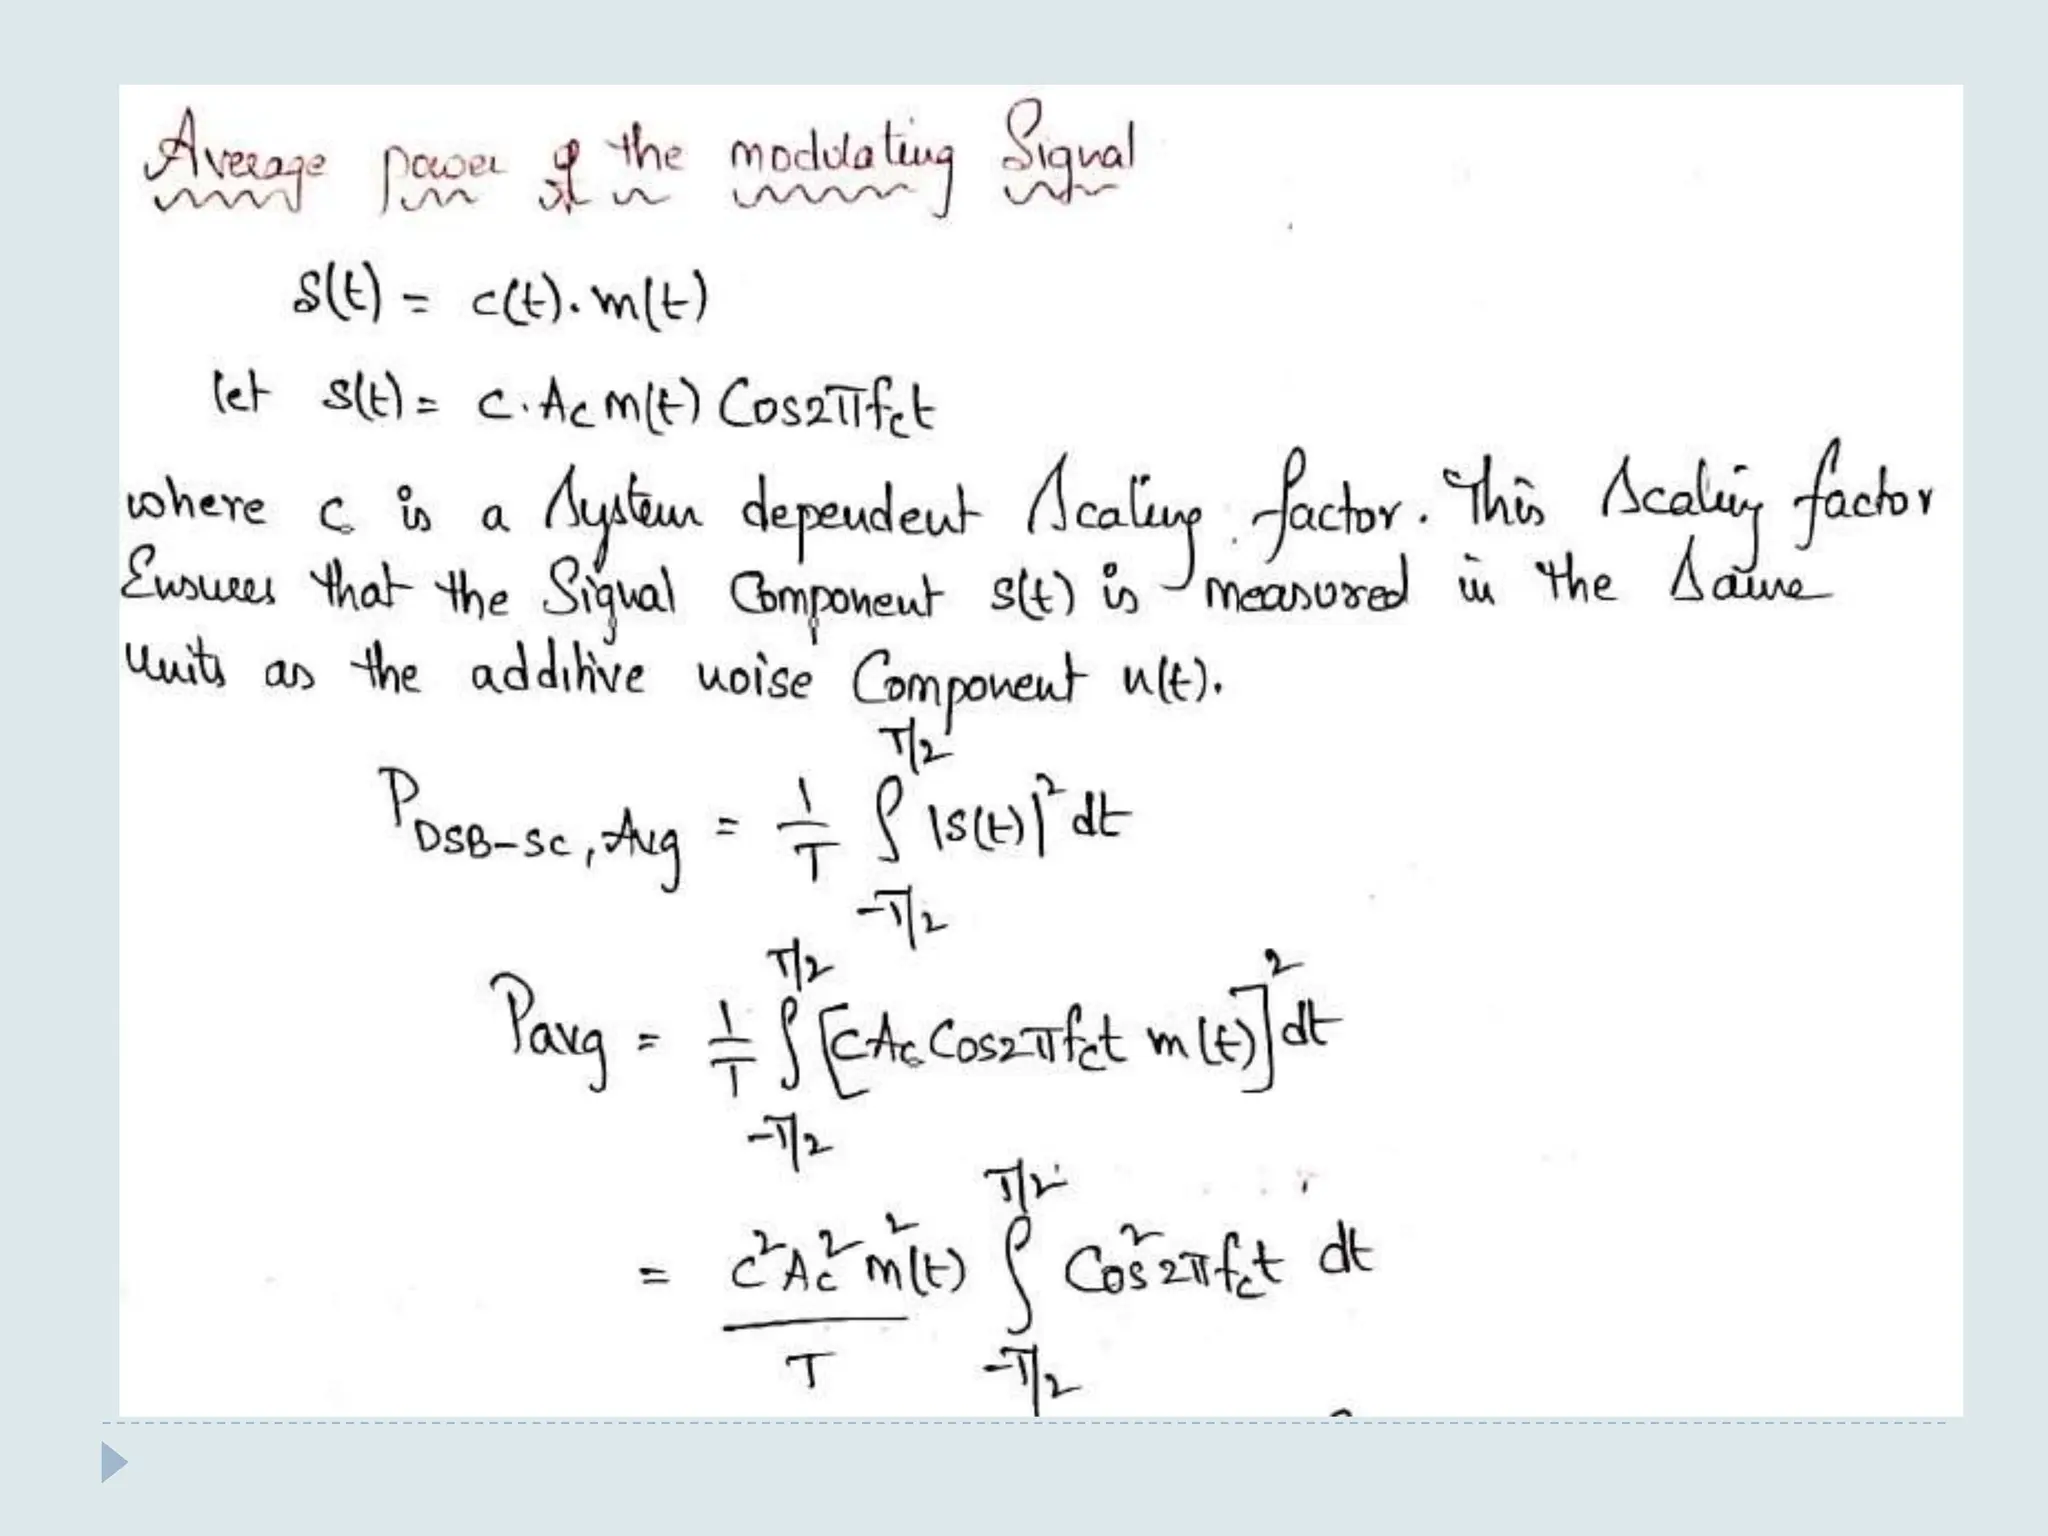 Average power of the modulating Signal
s(t) = c(t). m(t)
let s(t) = C.Ac m(t) Cos2πfct
where C is a System dependent Scaling factor. This Scaling factor
Ensures that the Signal Component s(t) is measured in the Same
Units as the additive noise Component n(t).
P_DSB-SC, Avg = 1/T ∫_{-T/2}^{T/2} |s(t)|² dt
Pavg = 1/T ∫_{-T/2}^{T/2} [CAc Cos2πfct m(t)]² dt
= C²Ac² m²(t)/T ∫_{-T/2}^{T/2} Cos²2πfct dt